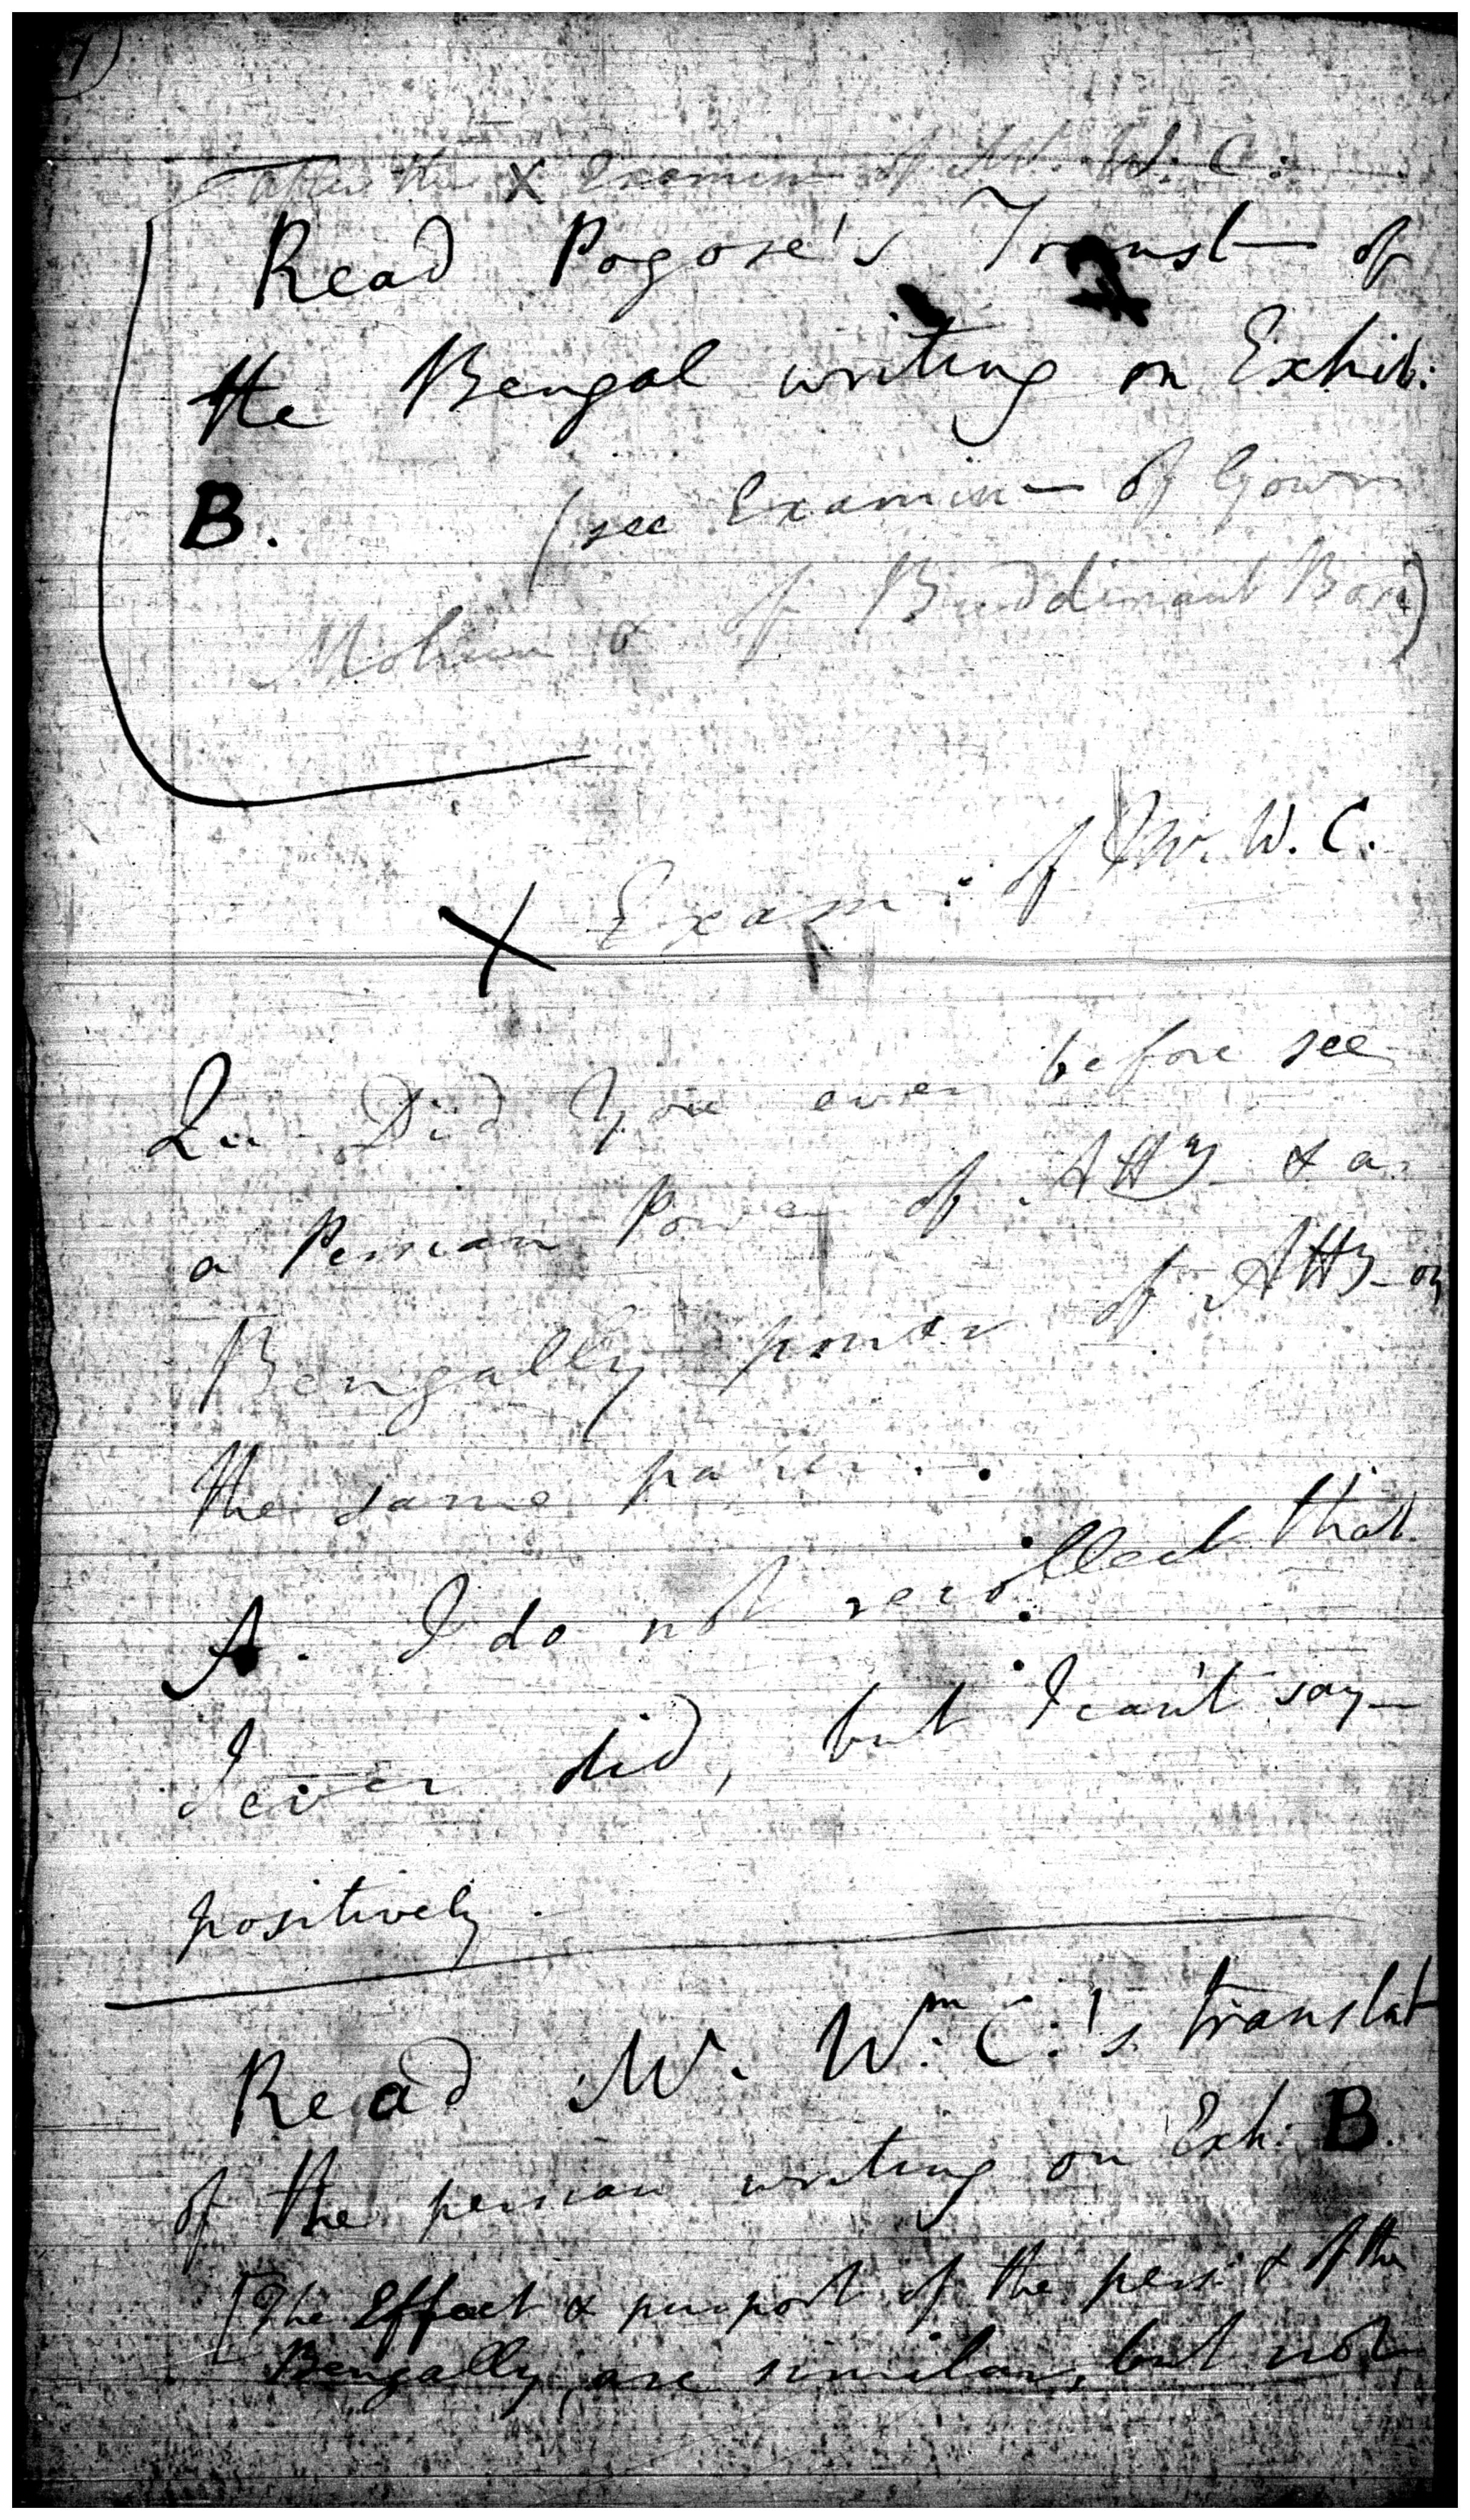 after the X Examin— of Mr. W. C:
Read Pogose's Transl— of
the Bengal writing on Exhib:
B. (see Examin— of Gowr
Mohun & of Buddinaut Bose)
X Exam: of Mr. W. C.
Qu. Did you ever before see
a Persian Power of Atty & a
Bengally power of Atty on
the same paper.
A. I do not recollect that
I ever did, but I can't say—
positively.
Read Mr. Wm. C.'s translat
of the persian writing on Exh: B.
[The Effect & purport of the pers: & of the
Bengally, are similar, but not